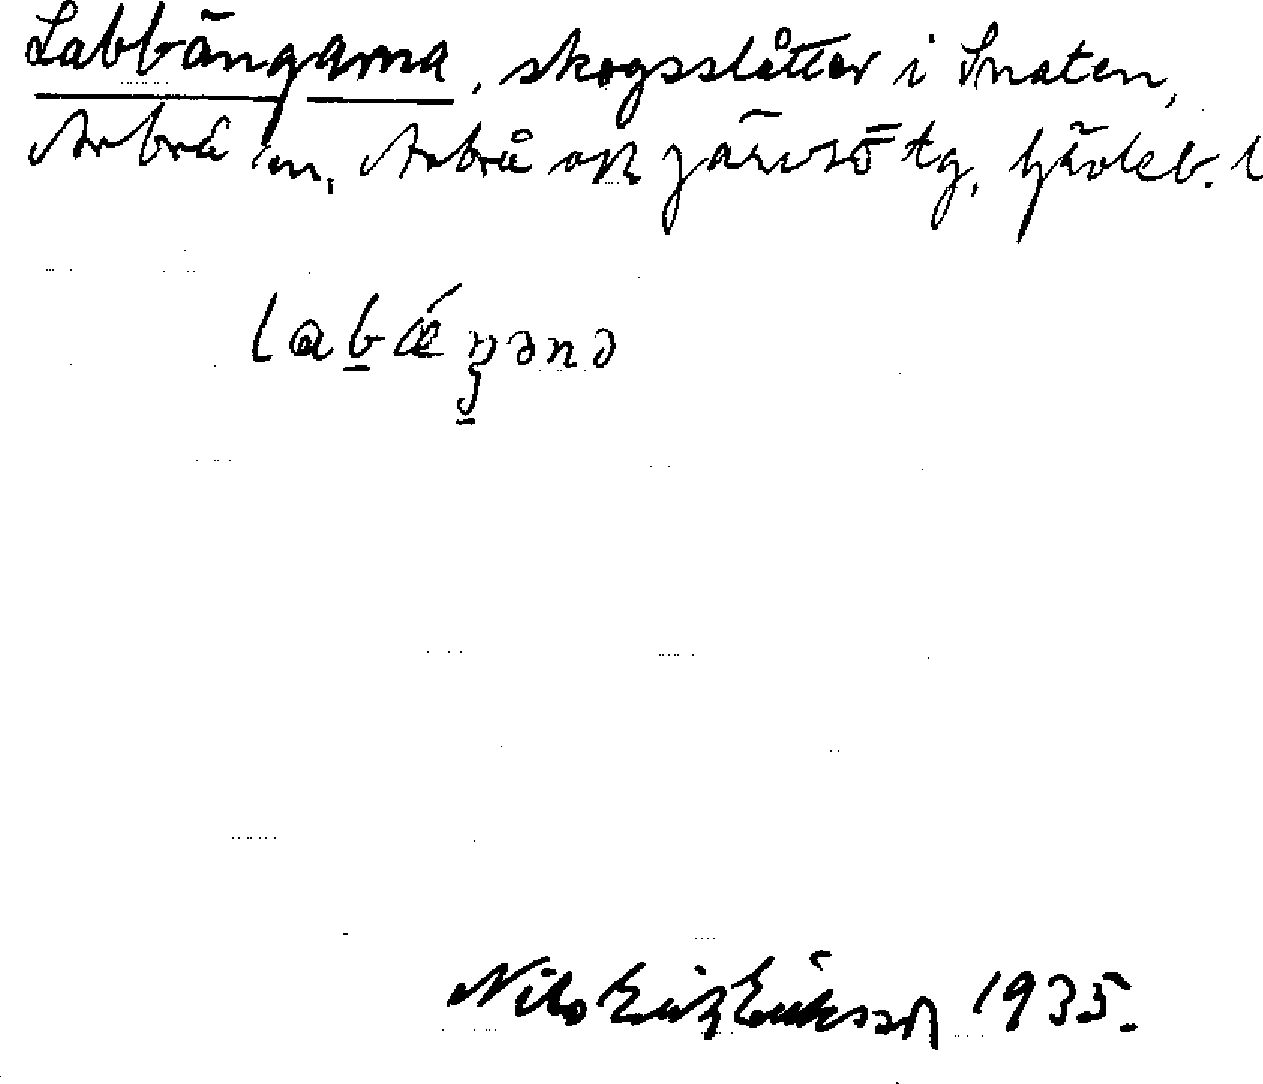 Labbängarna, skogsslåtter i Snaten,
Arbrå sn, Arbrå ok Järvsö tg, Gävleb. l
Nils Erik Eriksson 1935.